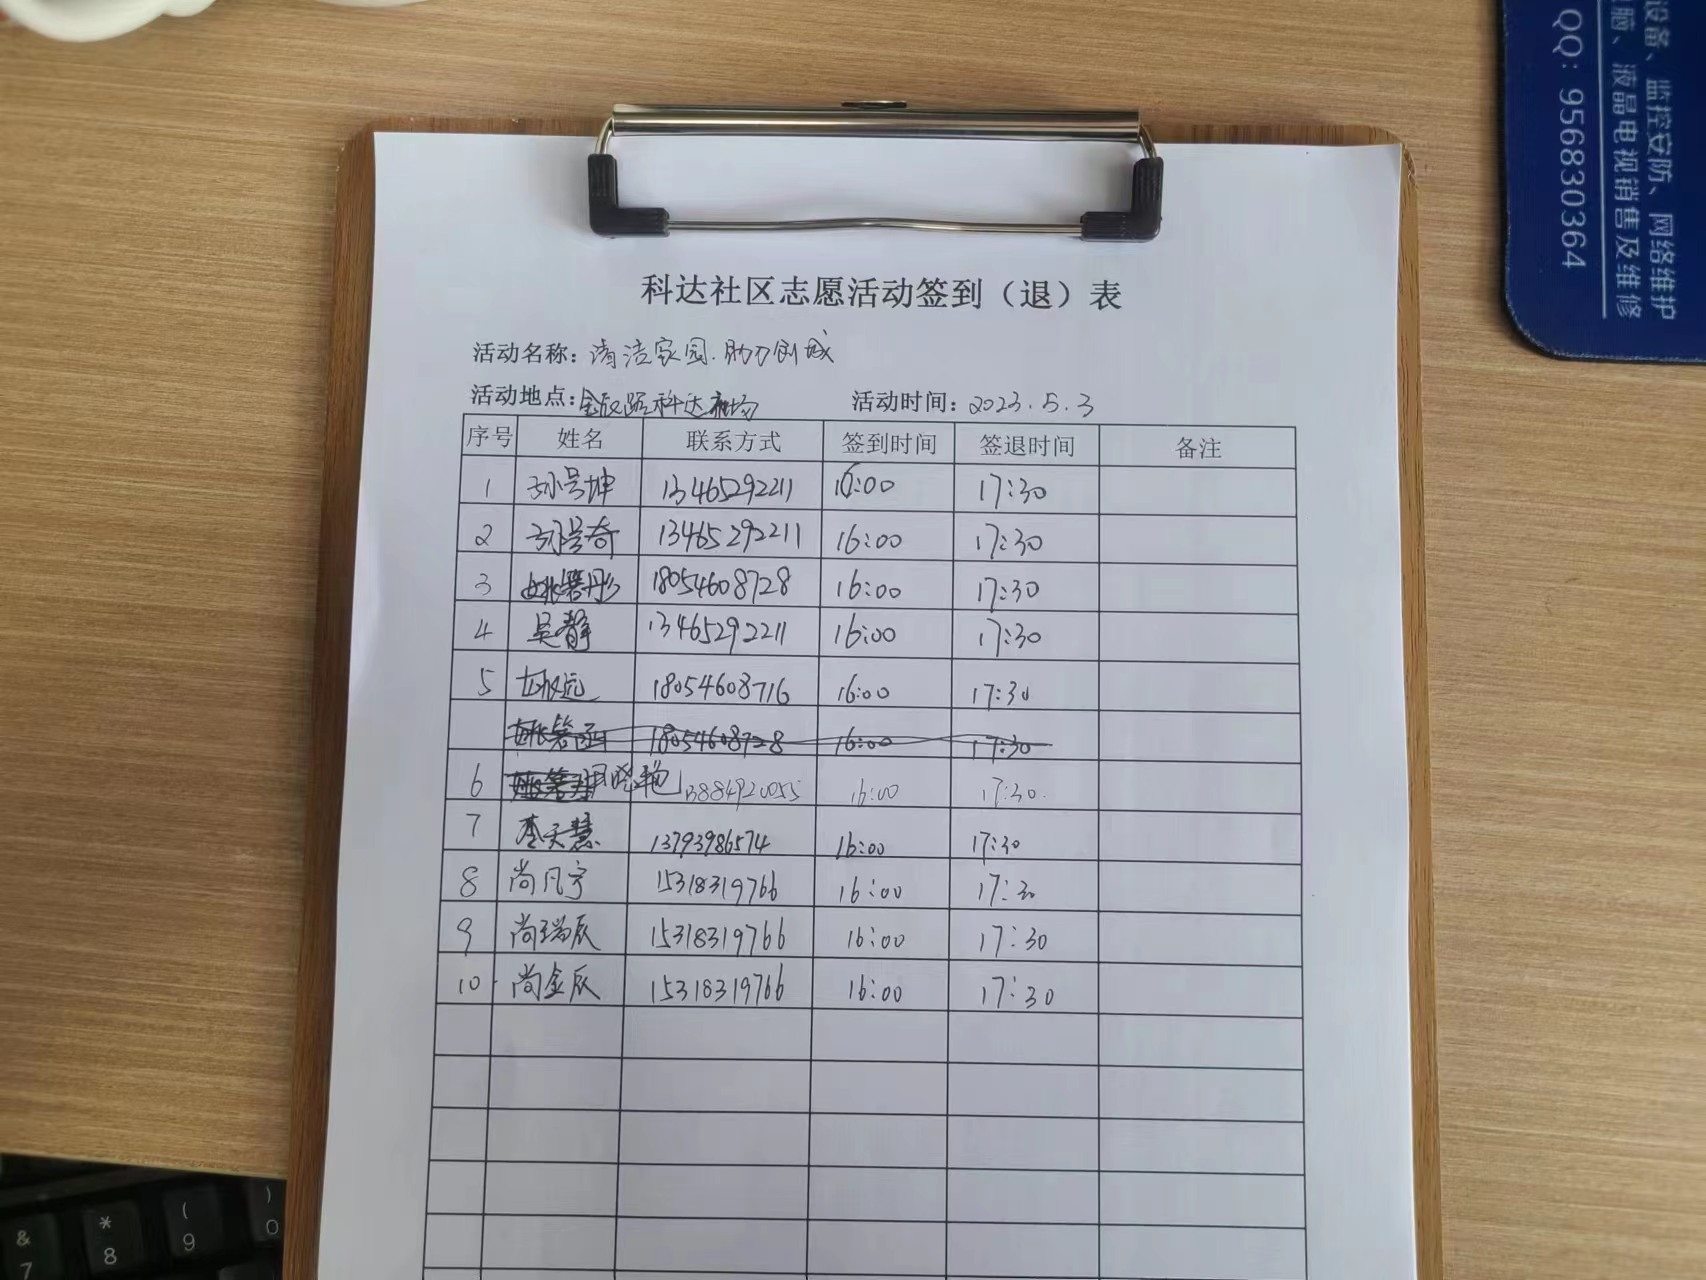 设备、监控安防、网络维护
脑、液晶电视销售及维修
QQ: 956830364
科达社区志愿活动签到（退）表
活动名称: 清洁家园.助力创城
活动地点: 金辰路科达市场 活动时间: 2023.5.3
序号 姓名 联系方式 签到时间 签退时间 备注
1 孙号坤 13465292211 16:00 17:30
2 孙号奇 13465292211 16:00 17:30
3 姚箬彤 18054608728 16:00 17:30
4 吴静 13465292211 16:00 17:30
5 18054608716 16:00 17:30
姚箬函 18054608728 16:00 17:30
6 13884920055 16:00 17:30.
7 李天慧 13793986574 16:00 17:30
8 尚凡宇 15318319766 16:00 17:30
9 尚瑞辰 15318319766 16:00 17:30
10. 尚金辰 15318319766 16:00 17:30
& * ( )
7 8 9 0